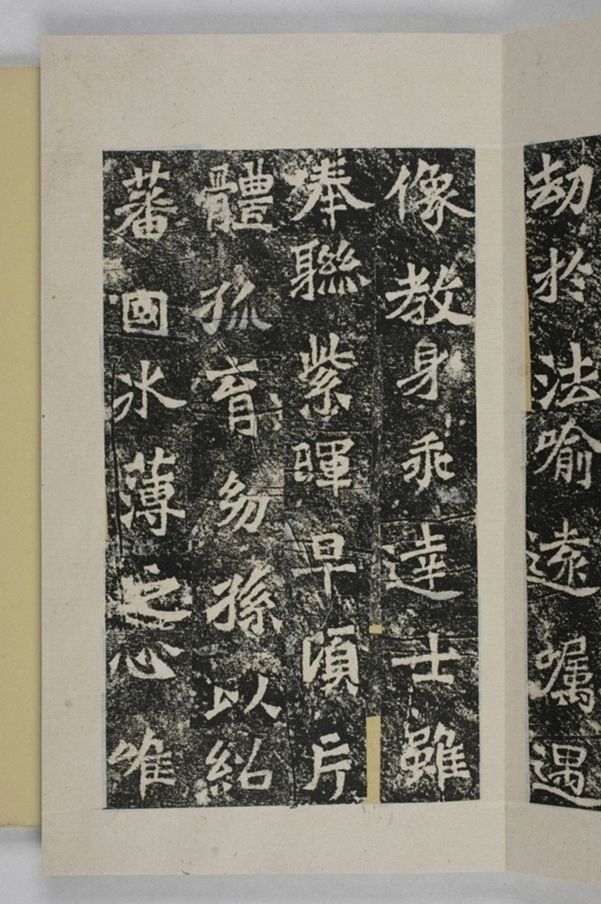 劫於法喻遠囑遇
像教身乖達士雖
奉聯紫暉早頃片
體孤育幼孫以紹
蕃國冰薄之心唯